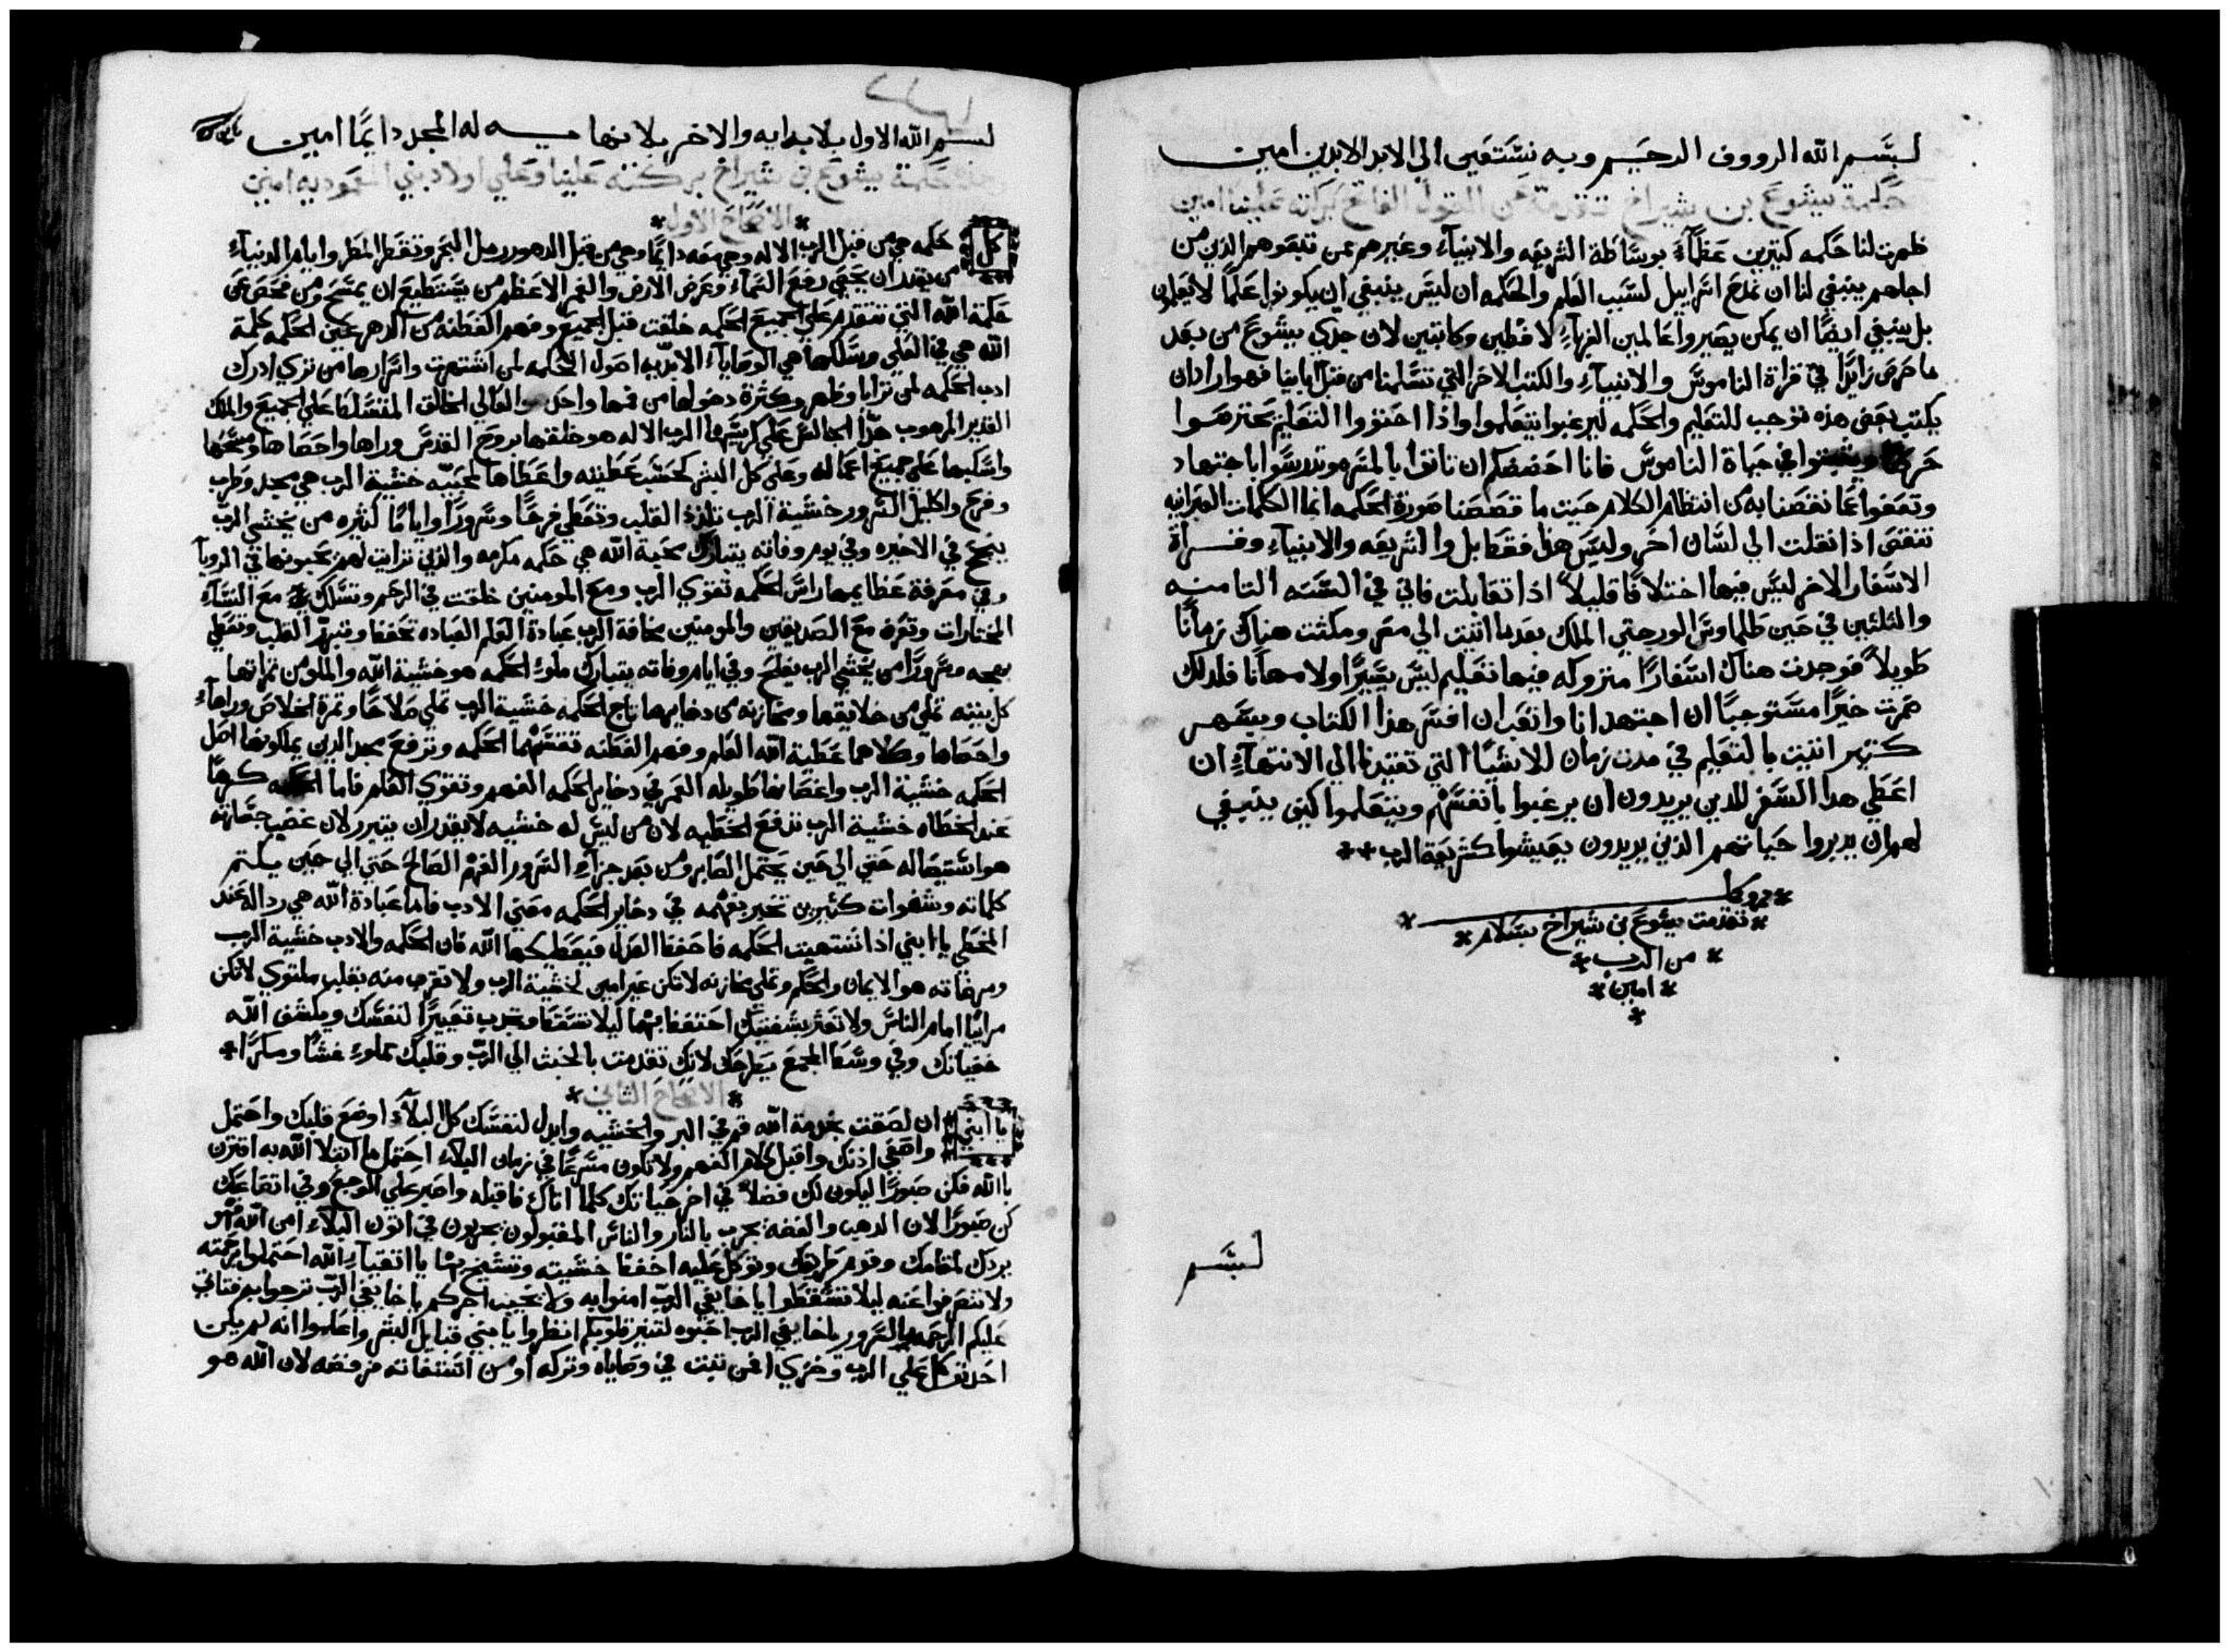 لبسم الله الرووف الرحيم وبه نستعين الي الابد الابدين امين
حكمة يشوع بن شيراخ تتقدمة من القول الفاتح بركاته علينا امين
ظهرت لنا حكمه كتيرين عظماء بوساطة الشريعه والانبياء وغيرهم ممن تتبعوهم الذين من
اجلهم ينبغي لنا ان نمدح اسراييل لسبب العلم والحكمه ان ليس ينبغي ان يكونوا علما لا تعلمون
بل ينبغي ايضا ان يمكن يصيروا عالمين الغرباء لافظين وكاتبين لان جدي يشوع من بعد
ما حرص زايدا في قراة الناموس والانبياء والكتب الاخر التي تسلمنا من قبل ابايبا فهو اراد ان
يكتب بعض هذه توجب للتعليم والحكمه ليرغبوا يتعلموا واذا احتووا التعليم يحترصوا
حرصا ويثبتوا في حياة الناموس فانا احضضكم ان تاتوا بالمسره وتدرسوا باجتهاد
وتعفوا عما نقصنا به من انتظام الكلام حيت ما قصصنا صورة الحكمه انما الكلمات العبرانيه
تنقص اذا نقلت الي لسان اخر وليس هذا فقط بل والشريعه والانبياء وقراة
الاسفار الاخر ليس فيها اختلافا قليلا اذا تقابلت فاني في السنه التامنه
والثلثين في حين طلماوس الورجتي الملك بعد ما اتيت الي مصر ومكثت هناك زمانا
طويلا فوجدت هناك اسفارا متروكه فيها تعليم ليس يسيرا ولا مهانا فلدلك
صرت خيرا مستوجبا ان اجتهد انا واتعب ان افسر هذا الكتاب وبسهر
كتير اتيت بالتعليم في مدت زمان للاشيا التي تقتيدنا الي الانتهاء ان
اعطي هدا السفر للدين يريدون ان يرغبوا بانفسهم ويتعلموا كيف ينبغي
لهم ان يدبروا حياتهم الذين يريدون يعيشوا كشريعة الرب **
*
* تقدمت يشوع بن شيراخ بسلام *
* من الرب *
* امين *
*
لبسم
لبسم الله الاول بلا بدايه والاخر بلا نهايه له المجد دايما امين
حكمة يشوع بن شيراخ بركته علينا وعلي اولاد بني المعموديه امين
* الاصحاح الاول *
كل حكمه هي من قبل الرب الاله وهي معه دايما وهي من قبل الدهور رمل البحر وتقطر المطر وايام الدنياء
من يقدر ان يحصي رفع السماء وعرض الارض والغمر الاعظم من يستطيع ان يمسح ومن فحص عن
حكمة الله التي تتقدم علي الجميع الحكمه خلقت قبل الجميع وفهم الفطنه من الدهر عين الحكمه كلمة
الله هي في العلي وسلكها هي الوصاياء الابديه اصول الحكمه لمن اشتهرت واسرارها من تري ادرك
ادب الحكمه لمن ترايا وظهر وكثرة دخولها من فهما واحد والعالي الخالق المتسلط علي الجميع والملك
القدير المرهوب جدا الجالس علي كرسيها الرب الاله هو خلقها بروح القدس وراها واحصاها ومسحها
واسكبها علي جميع اعماله وعلي كل البشر كحسب عطيته واعطاها لمحبيه خشية الرب هي مجد وطرب
وفرح واكليل السرور خشية الرب تلذذ القلب وتعطي فرحا وسرورا واياما كثيره من يخشي الرب
ينجح في الاخيره وفي يوم وفاته يتبارك محبة الله هي حكمه مكرمه والذي ترايت لهم يحبونها في الرويا
وفي معرفة عظايمها راس الحكمه تقوي الرب ومع المومنين خلقت في الرحم وتسلك مع النساء
المختارات وتعرف مع الصديقين والمومنين مخافة الرب عبادة العلم العباده تحفظ وتبرر القلب وتعطي
بهجه وسرورا من يخشي الرب يفلح وفي ايام وفاته يتبارك ملوء الحكمه هو خشية الله والملو من تمراتها
كل بيته تملي من خلايقها ومخازنه من دخايرها تاج الحكمه خشية الرب تملي صلاحا وتمرة الخلاص وراها
واحصاها وكلاهما عطية الله العلم وفهم الفطنه تقتسمها الحكمه وترفع مجد الدين يملكونها اصل
الحكمه خشية الرب واغصانها طويله العمر في دخاير الحكمه الفهم وتقوي العلم فاما الحكمه كرها
عند الخطاه خشية الرب تدفع الخطيه لان من ليس له خشيه لا يقدر ان يتبرر لان غضب جسارته
هو استيصاله حتي الي حين يحتمل الصابر ومن بعد جزاء السرور الفهم الصالح حتي الي حين يكتم
كلماته وشفوات كتيرين تخبر بفهمه في دخاير الحكمه معني الادب فاما عبادة الله هي رداله عند
المخطي يا ابني اذا اشتهيت الحكمه فاحفظ العدل فيعطيكها الله فان الحكمه والادب خشية الرب
ومرضاته هو الايمان والحكم وتملي مخازنه لا تكن غير امين لخشية الرب ولا تقرب منه بقلب ملتوي لا تكن
مراييا امام الناس ولا تعثر بشفتيك احتفظ بهما ليلا تسقط وتجرب تعييرا لنفسك ويكشف الله
خفياتك وفي وسط المجمع يطرحك لانك تقدمت بالخبث الي الرب وقلبك مملوء غشا ومكرا *
* الاصحاح الثاني *
يا ابني ان لصقت بخدمة الله قم في البر والخشيه وابدل لنفسك كل البلاء اوضع قلبك واحتمل
واصغي اذنك واقبل كلام الفهم ولا تكون مسرعا في زمان البلاء احتمل ما ابتلا الله به اقترن
بالله فكن صبورا ليكون لك فضلا في اخر حياتك كلما اتاك فاقبله واصبر علي الوجع وفي اتضاعك
كن صبورا لان الدهب والفضه يجرب بالنار والناس المقبولون يجربون في اتون البلاء امن الله
يردك لمقامك وقوم طريقك وتوكل عليه احفظ خشيته وتشيخ بها يا اتقياء الله احتملوا رحمته
ولا تنصرفوا عنه ليلا تسقطوا يا خايفي الرب امنوا به ولا يخيب اجركم يا خايفي الرب ترجوا به فتاتي
عليكم الرحمه والسرور يا خايفي الرب احبوه لتنير قلوبكم انظروا يا بني قبايل البشر واعلموا انه لم يكن
احد توكل علي الرب وخزي من تبت في وصاياه وتركه او من استغاثه فرفضه لان الله هو